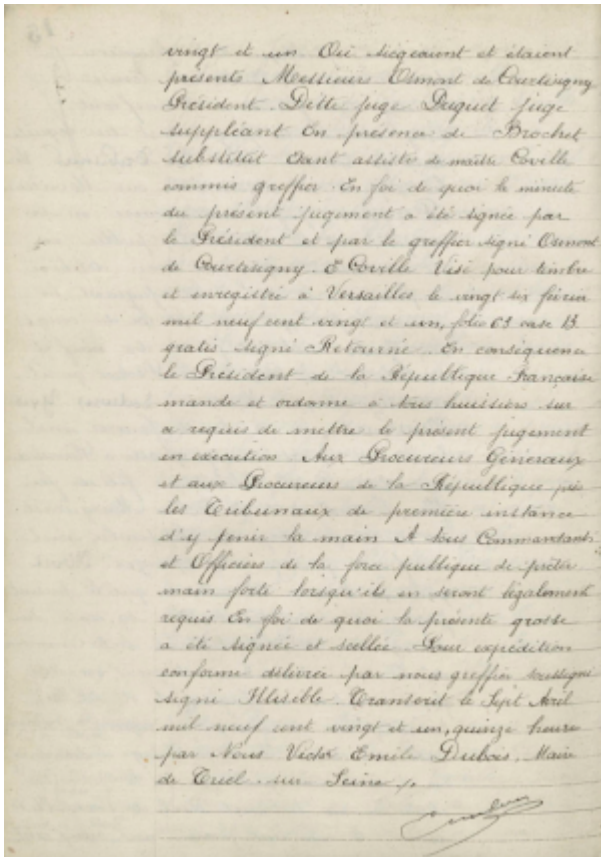 vingt et un Où siégeaient et étaient
présents Messieurs Osmont de Courtisigny
Président. Dette juge Duquet juge
suppléant En présence de Brochet
substitut Etant assisté de maître Coville
commis greffier. En foi de quoi la minute
du présent jugement a été signée par
le Président et par le greffier signé Osmont
de Courtisigny. E Coville Visé pour timbre
et enregistré à Versailles le vingt six février
mil neuf cent vingt et un, folio 63 case 13
gratis signé Retourné. En conséquence
le Président de la République Française
mande et ordonne à tous huissiers sur
ce requis de mettre le présent jugement
en exécution Aux Procureurs Généraux
et aux Procureurs de la République près
les Tribunaux de première instance
d'y tenir la main A tous Commandants
et Officiers de la force publique de prêter
main forte lorsqu'ils en seront légalement
requis En foi de quoi la présente grosse
a été signée et scellée Pour expédition
conforme délivrée par nous greffier soussigné
signé Illisible. Transcrit le Sept Avril
mil neuf cent vingt et un, quinze heures
par Nous Victor Emile Dubois, Maire
de Triel-sur-Seine